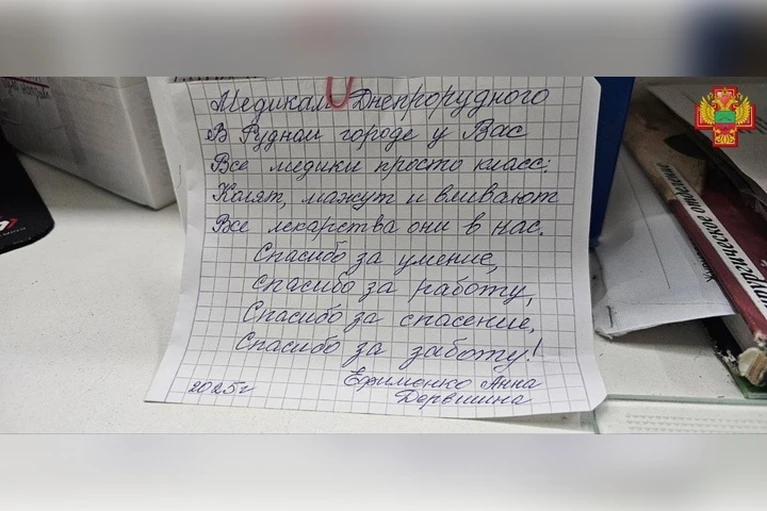 Медикам Днепрорудного
В Рудном городе у Вас
Все медики просто класс:
Колят, мажут и вливают
Все лекарства они в нас.
Спасибо за умение,
Спасибо за работу,
Спасибо за спасение,
Спасибо за заботу!
2025г
Ефименко Анна
хирургическое отделение